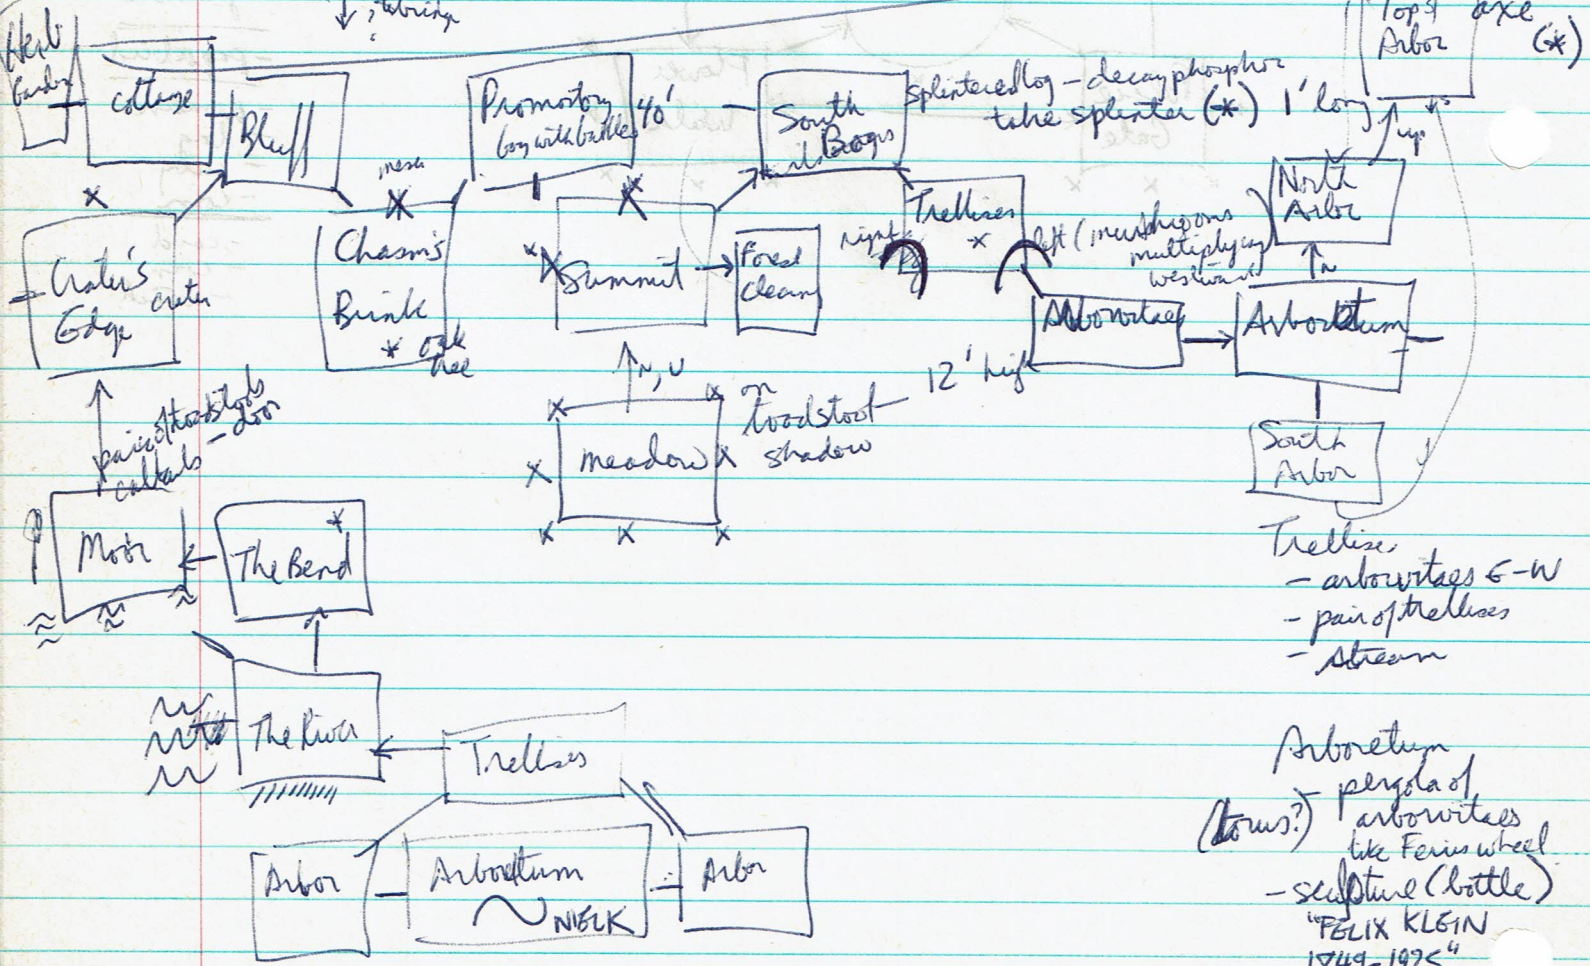 Herb
Garden
cottage
Bluff
Promontory
boy with bubbles
40'
mesa
South
Bogs
Splintered log - decay phosphor
take splinter (*) 1' long
Top of
Arbor
axe
(*)
up
North
Arbor
N
Crater's
Edge
crater
Chasm's
Brink
* oak
tree
Summit
Forest
clearing
Trellises
right
left (mushrooms
multiplying
westward)
Arborvitaes
Arboretum
South
Arbor
N, U
meadow
on
toadstool
shadow
12' high
pair of toadstools
cattails - door
Moor
The Bend
The River
Trellises
Arbor
Arboretum
NIELK
Arbor
Trellises
- arborvitaes E-W
- pair of trellises
- stream
Arboretum
- pergola of
arborvitaes
(torus?)
like Ferris wheel
- sculpture (bottle)
"FELIX KLEIN
1849-1925"